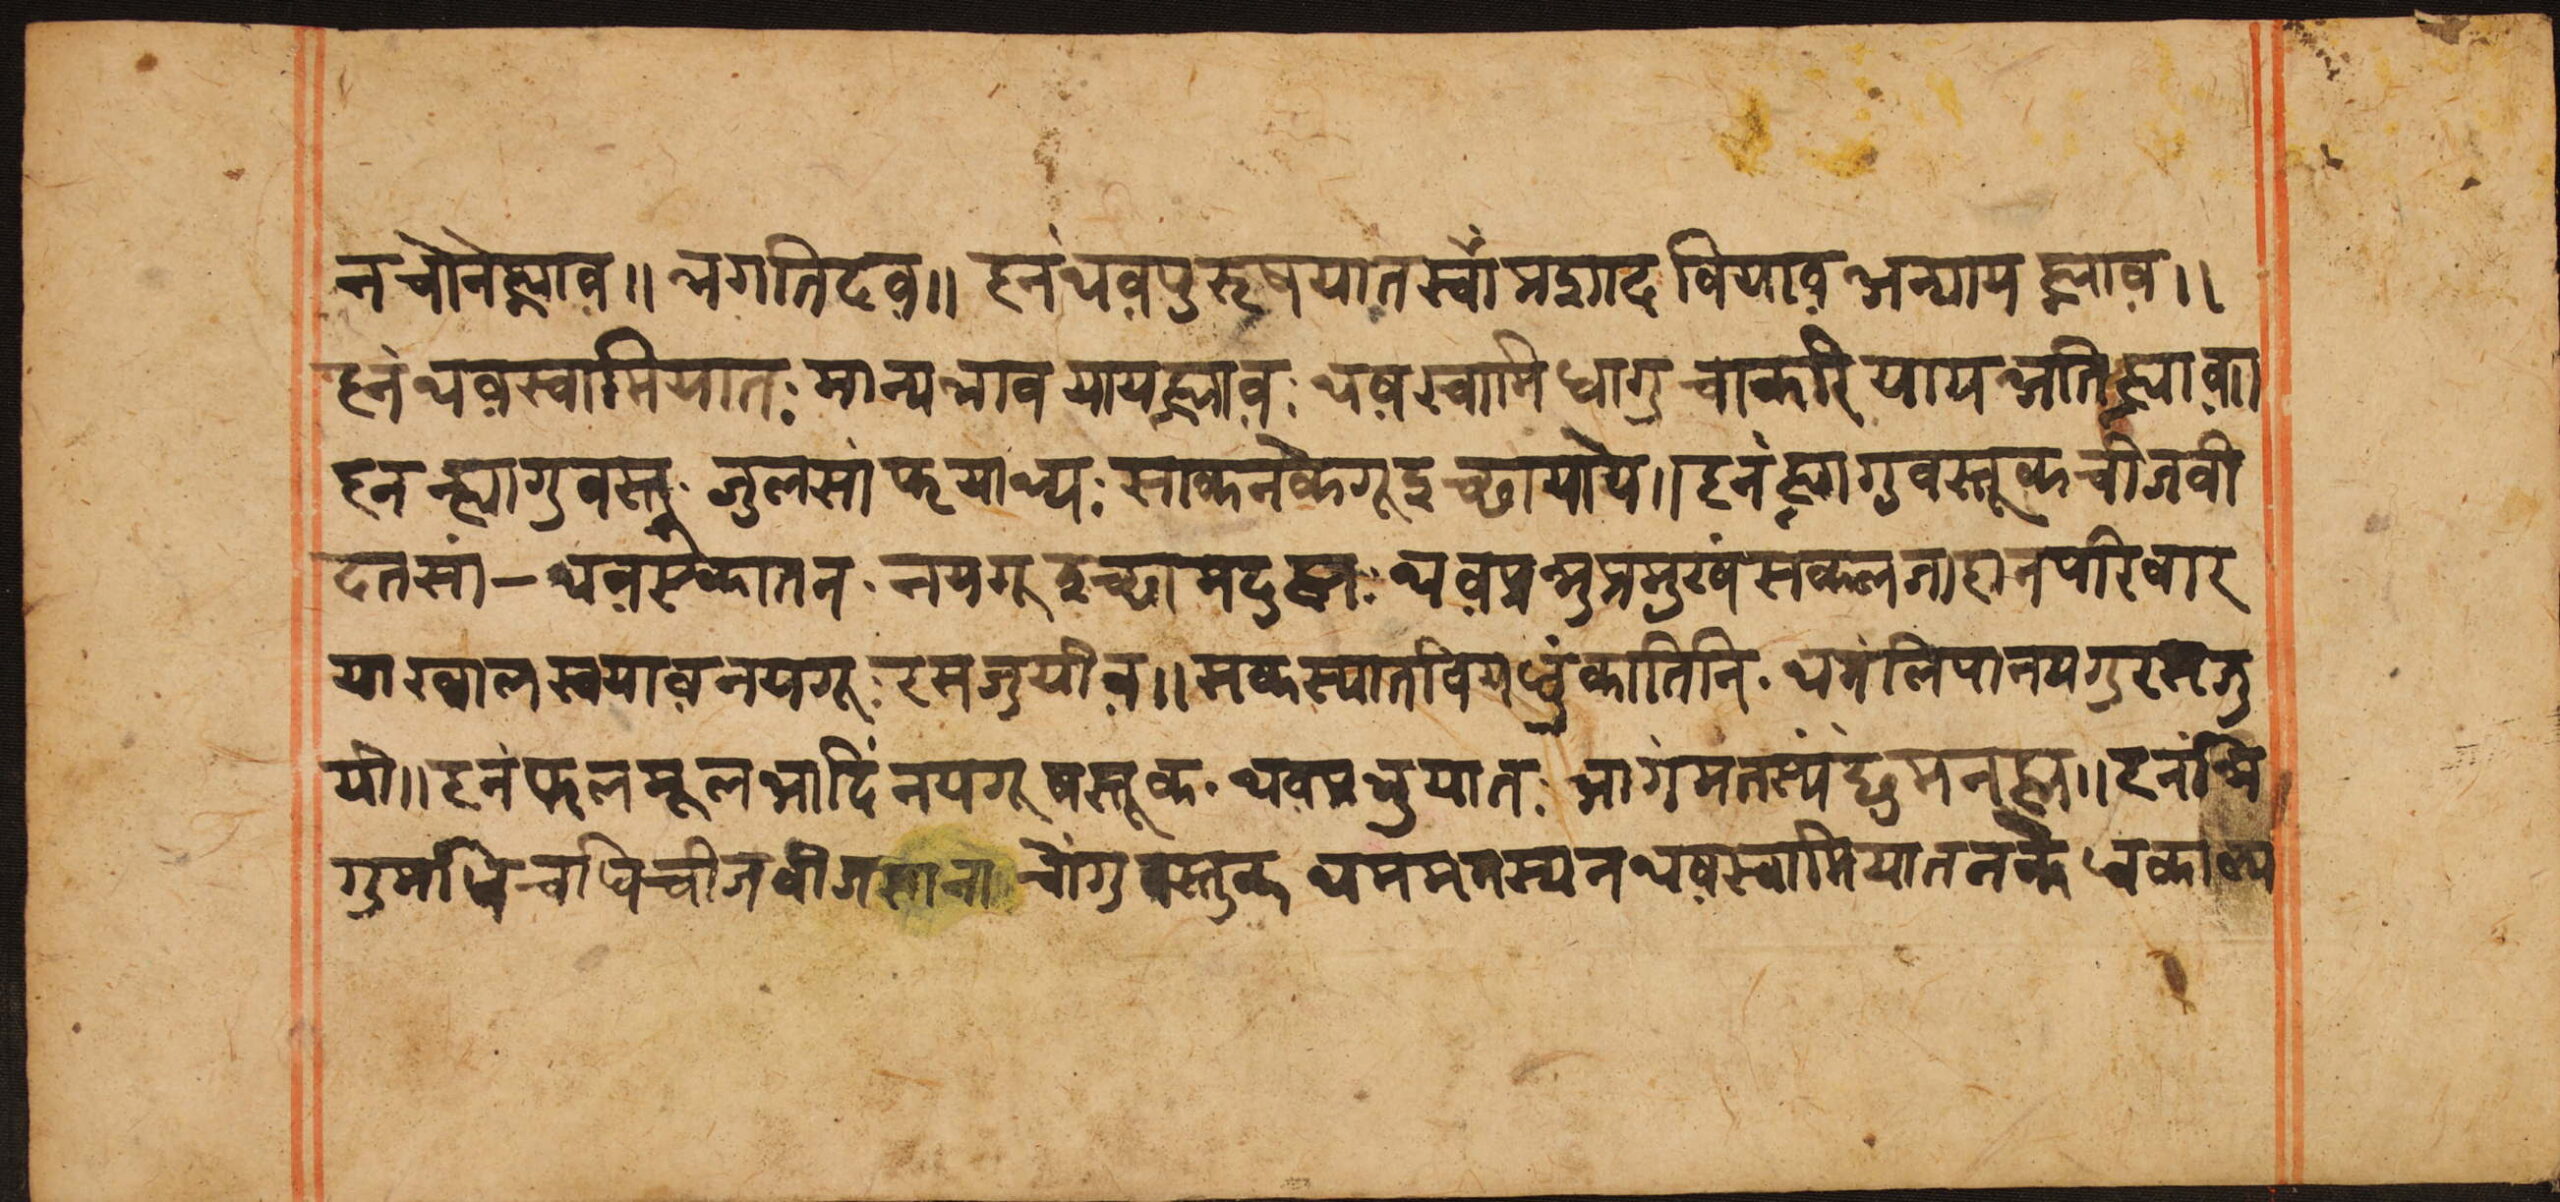 न चोनेह्माव॒॥ भगतिदव॒॥ हनं थव॒पुरूषयात स्वां मद्गाद वियाव॒ अन्याय ह्माव॒॥
हनं थव॒स्वामियात: मान्यभाव यायह्माव॒: थव॒स्वामि धागु चाकरि याय भति ह्माव॒॥
हनं ह्यागु वस्तु जुलसां फयाथ्य: साकनकेगू इच्छा यायि॥ हनं ह्यागु वस्तूक चीजवी
दतसां – थव॒स्येकातन नयगू इच्छा मदुह्म: थव॒प्रभु प्रमुखं सकल जाहान परिवार
या ख्वाल स्वयाव॒ नयगू: रस जुयीव॒॥ सकस्यात वियाथुंकातिनि थमं लिपा नयगु रस जु
यी॥ हनं फलमूल आदिं नयगू वस्तूक थव॒प्रभुयात: भागं मतस्यं छुं मनह्म॥ हनं भिं
गु मभिं चघि चीजवीज सानां चोंगु वस्तुक थममतस्य न थव॒स्वामियात नकेधकाथ्य